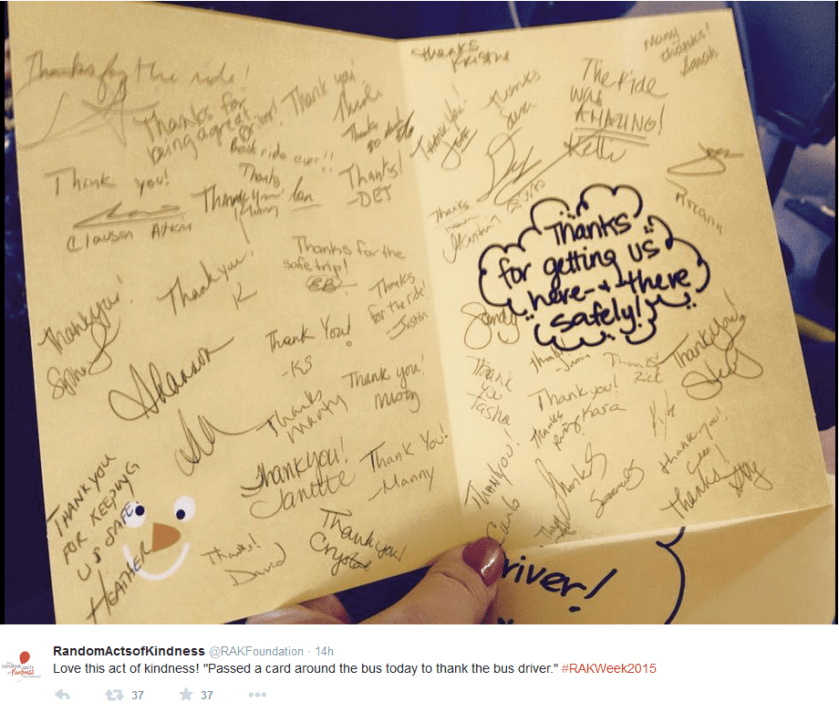 Thanks for the ride!
Thanks for
being a great
driver!
Best ride ever!!
Thank you
Thanks
so much
Thank you!
Clawson
Thank you
Thanks
Ian
Thanks!
-DEJ
Thank you!
Thank you!
K
Thanks for the
safe trip!
Thanks
for the ride!
Justin
Shannon
Thank You!
-KS
Thanks
Marty
Thank you!
Misty
Thank you!
Janette
Thank You!
-Manny
THANK YOU
FOR KEEPING
US SAFE
HEATHER
Thanks!
David
Thank you!
Crystal
Thanks
Kristine
Many
thanks!
Sarah
Thank you!
Thanks
The ride
was
AMAZING!
Kelli
Thanks
Roxann
Thanks
for getting us
here + there
safely!
Sandy
Thank
you
Tasha
Thanks
Thank you!
Kara
Thank you!
Thank you!
Thanks
Thank you!
Thanks
river!
RandomActsofKindness @RAKFoundation · 14h
Love this act of kindness! "Passed a card around the bus today to thank the bus driver." #RAKWeek2015
37 37